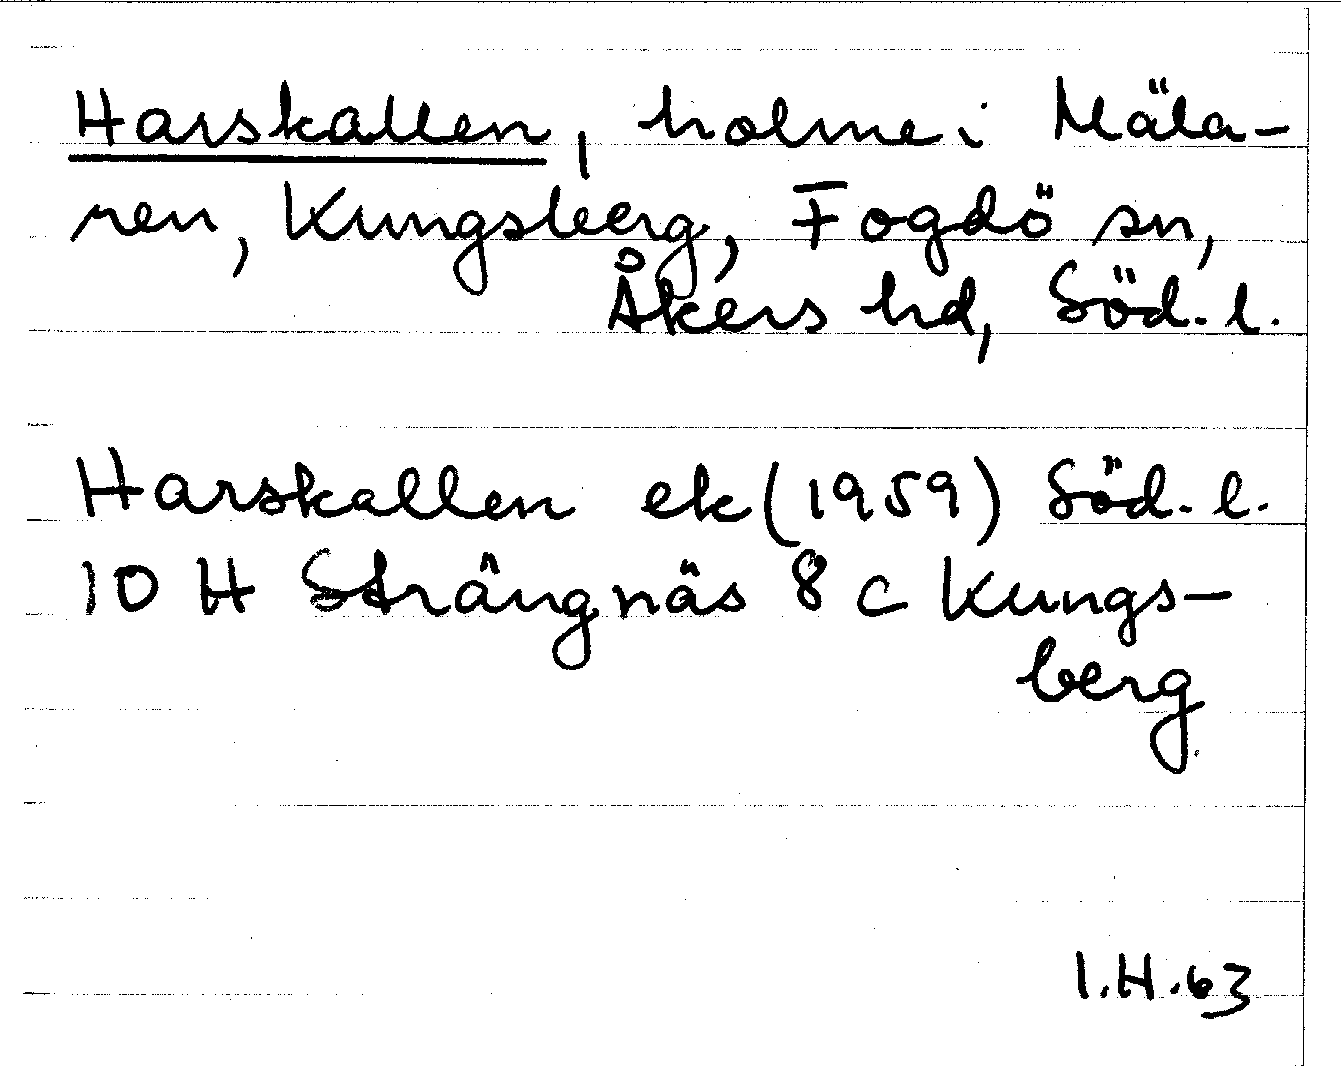 Harskallen, holme i Mäla-
ren, Kungsberg, Fogdö sn,
Åkers hd, Söd. l.
Harskallen ek (1959) Söd. l.
10 H Strängnäs 8 c Kungs-
berg
I.H.63